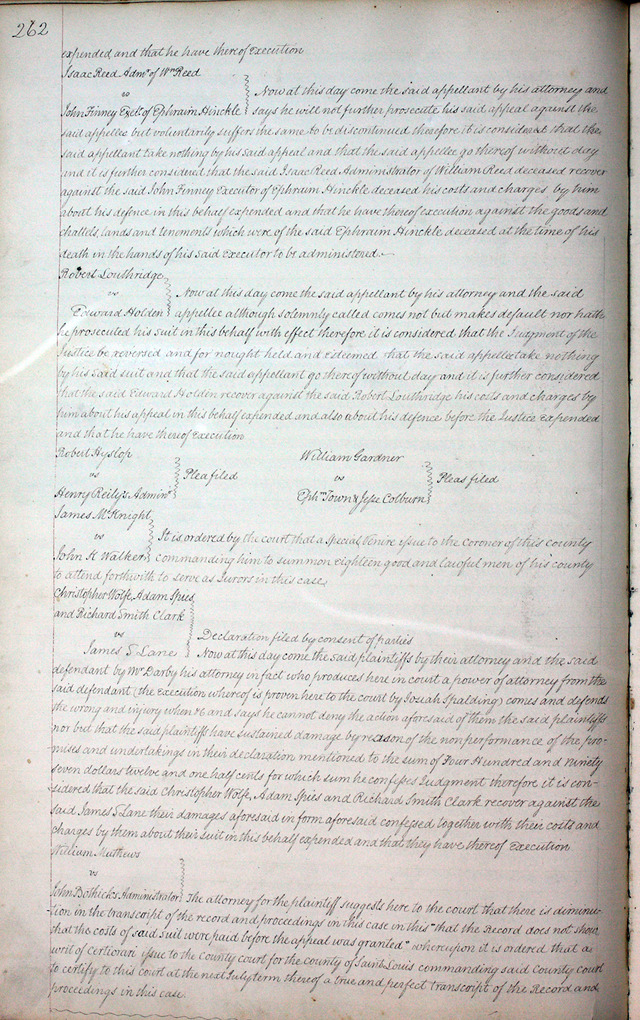 262
expended and that he have thereof Execution
Isaac Reed Admr of Wm Reed
vs
John Finney Exr. of Ephraim Hinckle
Now at this day come the said appellant by his attorney and
says he will not further prosecute his said appeal against the
said appellee but voluntarily suffers the same to be discontinued therefore it is considered that the
said appellant take nothing by his said appeal and that the said appellee go thereof without day
and it is further considered that the said Isaac Reed Administrator of William Reed deceased recover
against the said John Finney Executor of Ephraim Hinckle deceased his costs and charges by him
about his defence in this behalf expended and that he have thereof execution against the goods and
chattels, lands and tenements which were of the said Ephraim Hinckle deceased at the time of his
death in the hands of his said Executor to be administered.
Robert Louthridge
vs
Edward Holden
Now at this day come the said appellant by his attorney and the said
appellee although solemnly called comes not but makes default nor hath
he prosecuted his suit in this behalf with effect therefore it is considered that the Judgment of the
Justice be reversed and for nought held and esteemed that the said appellee take nothing
by his said suit and that the said appellant go thereof without day and it is further considered
that the said Edward Holden recover against the said Robert Louthridge his costs and charges by
him about his appeal in this behalf expended and also about his defence before the Justice expended
and that he have thereof Execution
Robert Hyslop
vs
Henry Reily's Adminr
Plea filed
William Gardner
vs
Ephm Town & Jesse Colburn
Pleas filed
James McKnight
vs
John K Walker
It is ordered by the court that a Special Venire issue to the coroner of this county
commanding him to summon eighteen good and lawful men of his county
to attend forthwith to serve as Jurors in this case.
Christopher Wolfe, Adam Spies
and Richard Smith Clark
vs
James S Lane
Declaration filed by consent of parties
Now at this day come the said plaintiffs by their attorney and the said
defendant by Mr Darby his attorney in fact who produces here in court a power of attorney from the
said defendant (the execution whereof is proven here to the court by Josiah Spalding) comes and defends
the wrong and injury when &c and says he cannot deny the action aforesaid of them the said plaintiffs
nor but that the said plaintiffs have sustained damage by reason of the nonperformance of the pro-
mises and undertakings in their declaration mentioned to the sum of Four Hundred and ninety
seven dollars twelve and one half cents for which sum he confesses Judgment therefore it is con-
sidered that the said Christopher Wolfe, Adam Spies and Richard Smith Clark recover against the
said James S Lane their damages aforesaid in form aforesaid confessed together with their costs and
charges by them about their suit in this behalf expended and that they have thereof Execution
William Mathews
vs
John Bostick's Administrator
The attorney for the plaintiff suggests here to the court that there is diminu-
-tion in the transcript of the record and proceedings in this case in this "that the Record does not show
that the costs of said suit were paid before the appeal was granted" whereupon it is ordered that a
writ of certiorari issue to the county court for the county of Saint Louis commanding said County court
to certify to this court at the next July term thereof a true and perfect transcript of the Record and
proceedings in this case.